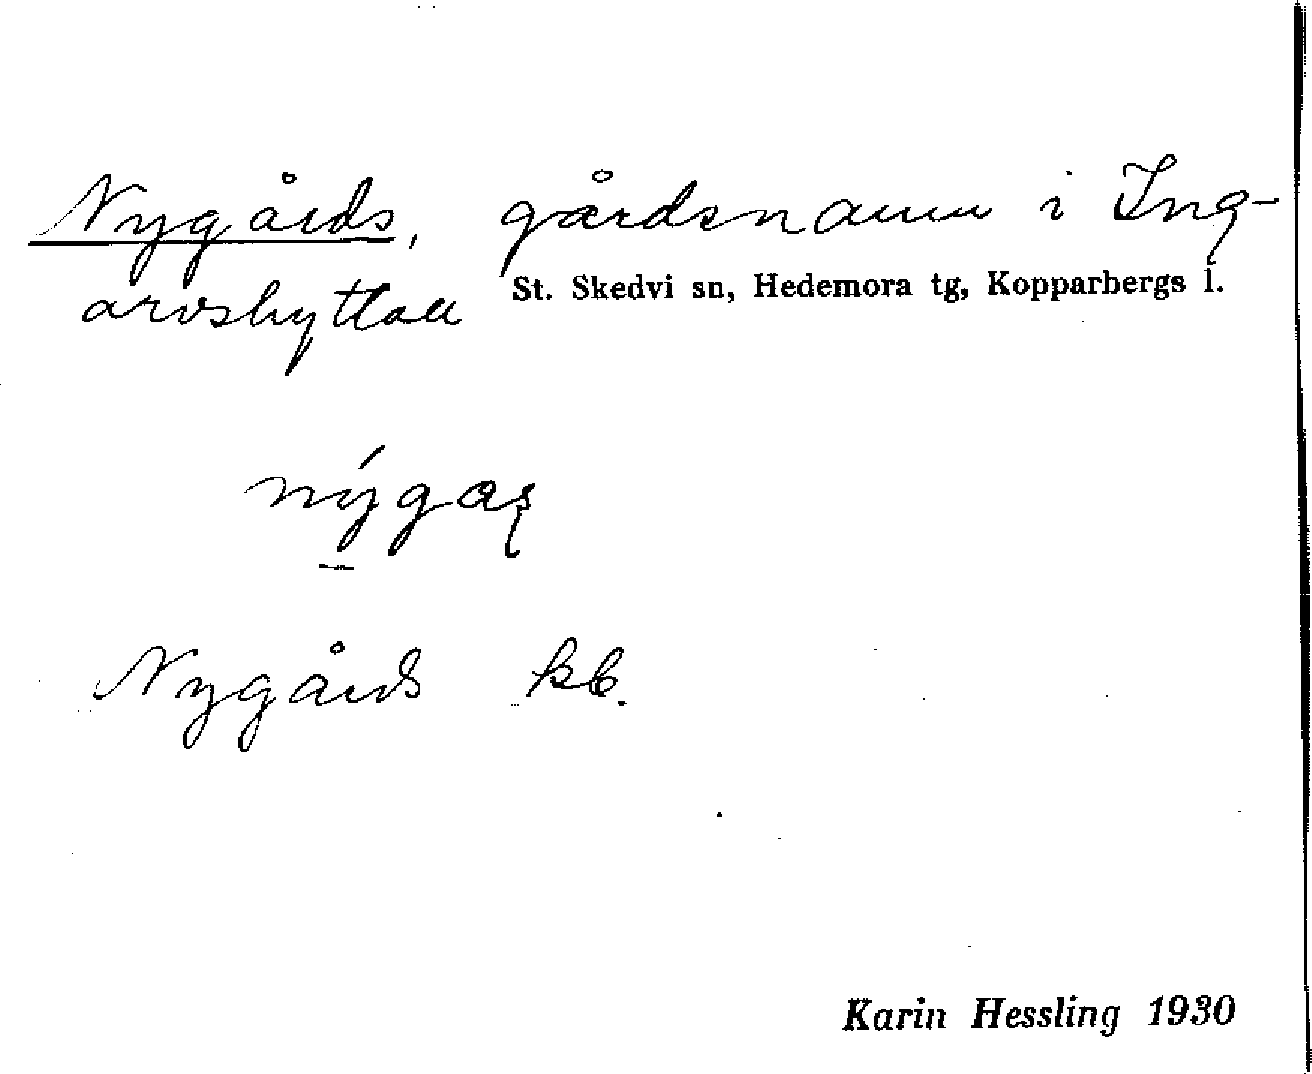 Nygårds, gårdsnamn i Ing-
arvshyttan St. Skedvi sn, Hedemora tg, Kopparbergs l.
nýgaʂ
Nygårds kb.
Karin Hessling 1930